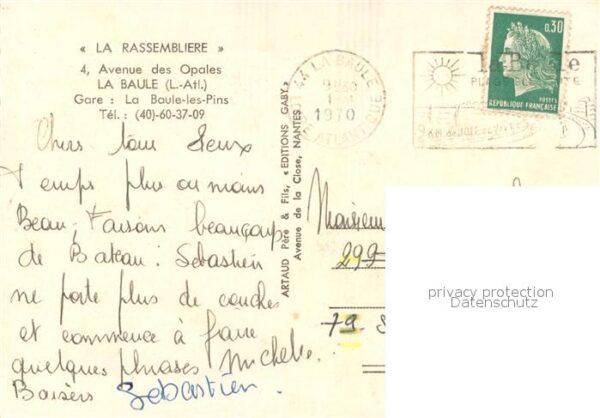 « LA RASSEMBLIERE »
4, Avenue des Opales
LA BAULE (L.-Atl.)
Gare : La Baule-les-Pins
Tél. : (40)-60-37-09
Chers tous deux
Temps plus ou moins
Beau, Faisons beaucoup
de Bateau. Sébastien
ne porte plus de couches
et commence à faire
quelques phrases Michelle.
Baisers Sébastien.
ARTAUD Père & Fils, « EDITIONS GABY »
Avenue de la Close, NANTES
44 LA BAULE
1970
LOIRE ATLANTIQUE
La Baule
0,30
POSTES
REPUBLIQUE FRANÇAISE
Monsieur
299
79
privacy protection
Datenschutz